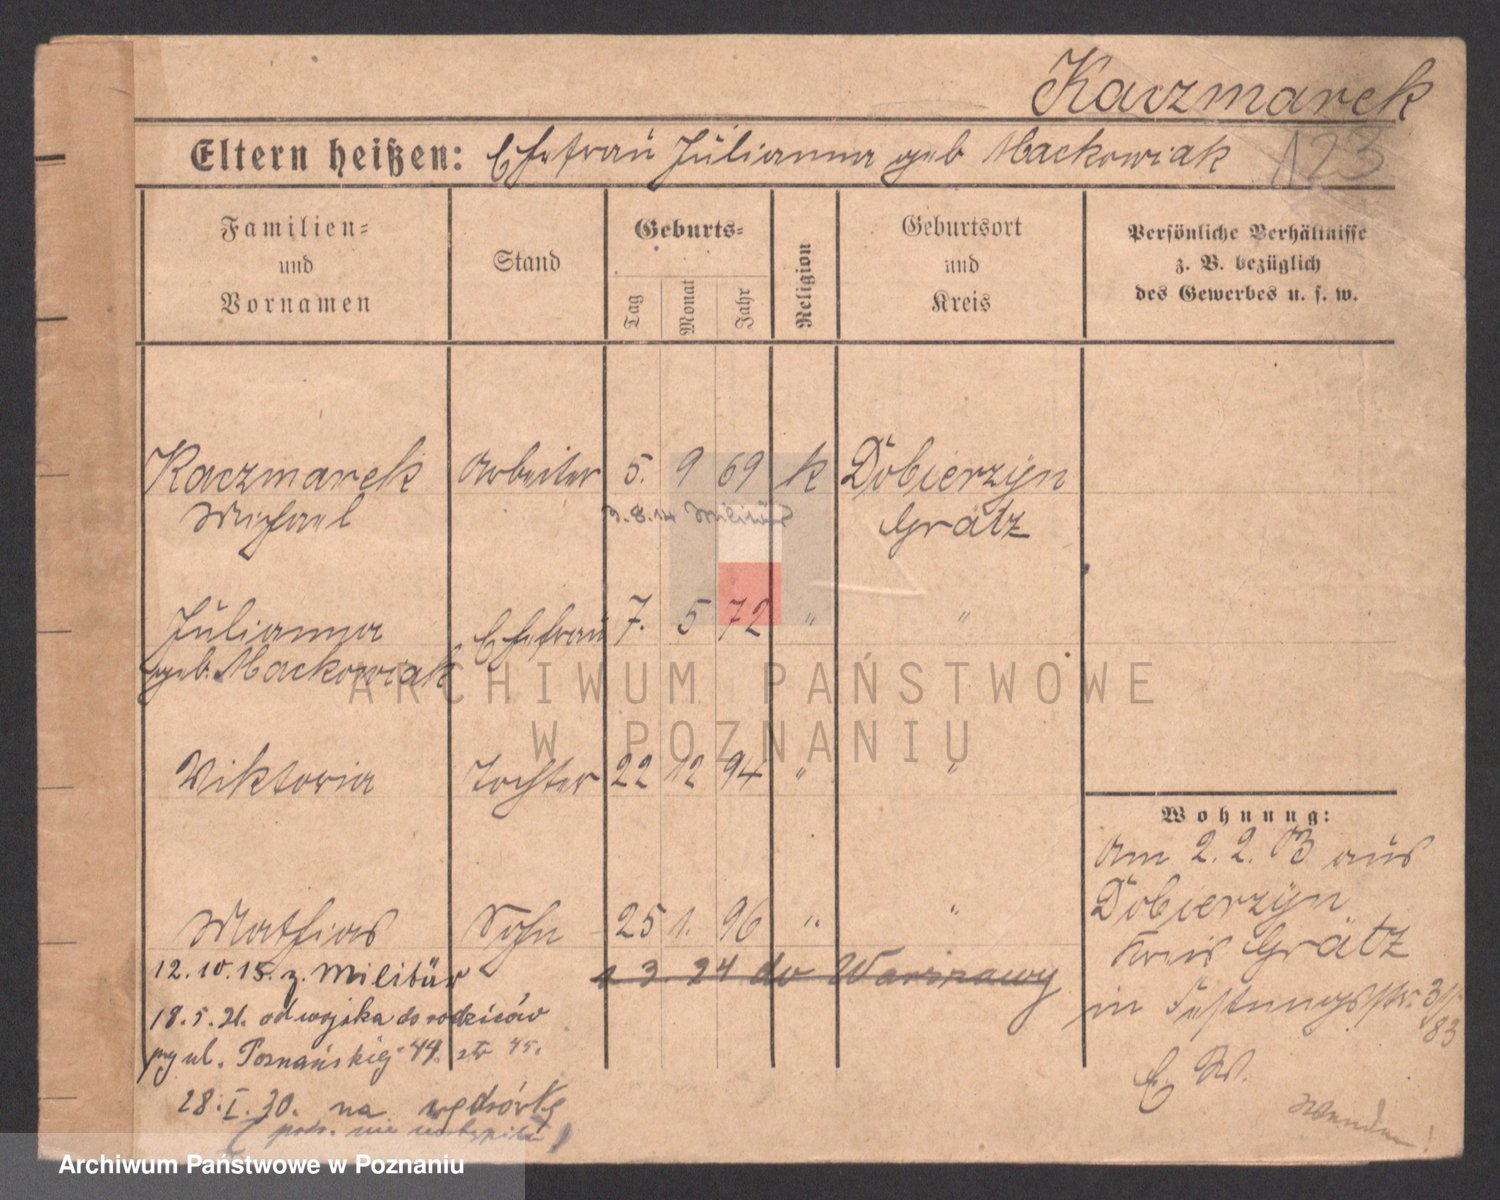 Kaczmarek
Eltern heißen: Ehefrau Julianna geb Mackowiak
123
Familien=
und
Vornamen
Stand
Geburts=
Tag
Monat
Jahr
Religion
Geburtsort
und
Kreis
Persönliche Verhältnisse
z. B. bezüglich
des Gewerbes u. s. w.
Kaczmarek Arbeiter 5. 9 69 k Dobierzyn
Michael 3.8.14 Militär Grätz
Julianna Ehefrau 7. 5 72 " "
geb. Mackowiak
Viktoria Tochter 22 12 94 " "
Wohnung:
Am 2. 2. 03 aus
Dobierzyn
Kreis Grätz
in Festungsstr. 3/5
83
E W.
Wenden!
Mathias Sohn 25 1. 96 " "
12.10.15. z. Militär
1 3 24 do Warszawy
18.5.21. od wojska do rodziców
przy ul. Poznańskiej 44. str 45.
28.I.30. na wędrówkę
(podr. nie wstąpił)
ARCHIWUM PAŃSTWOWE
W POZNANIU
Archiwum Państwowe w Poznaniu